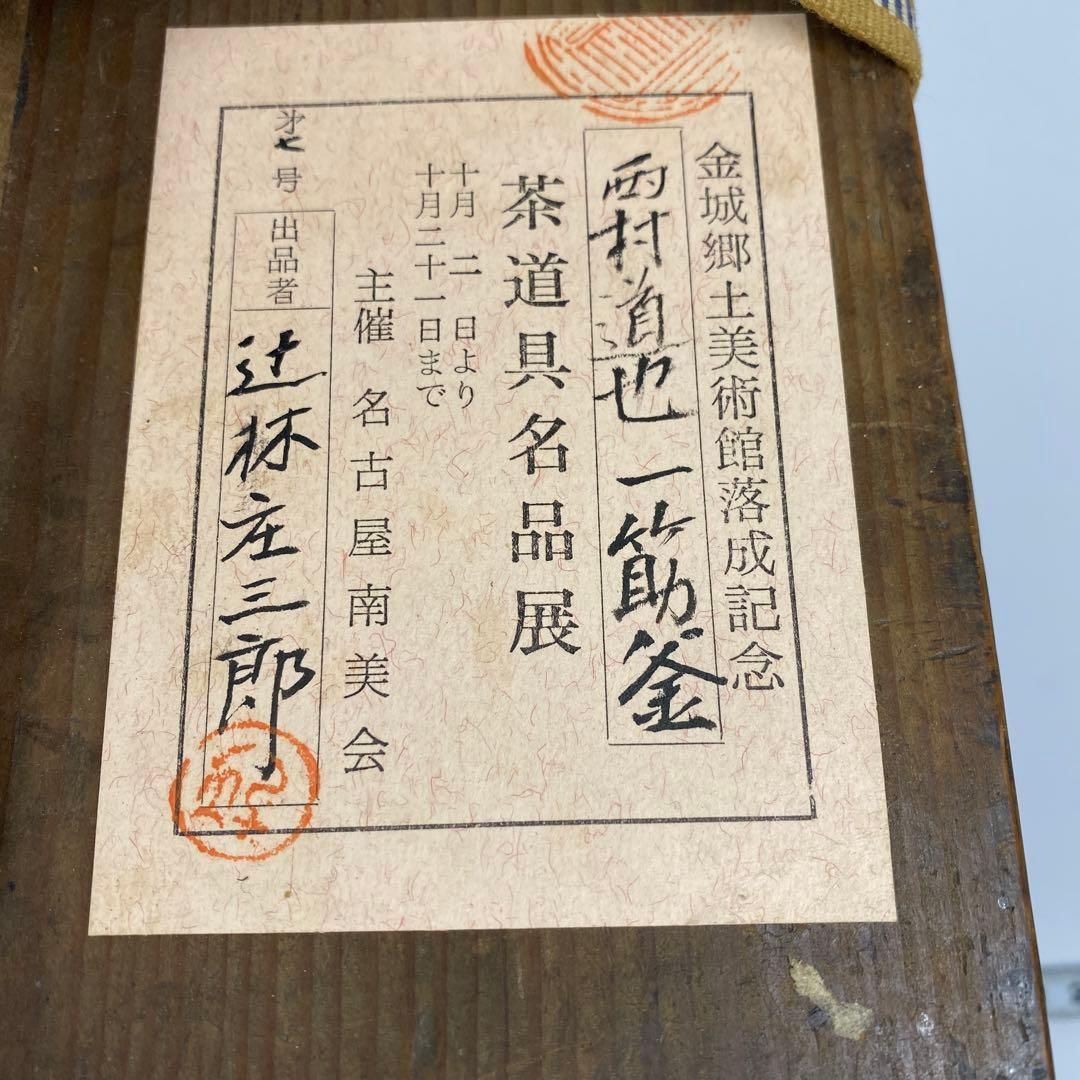 金城郷土美術館落成記念
西村道也 一筋釜
茶道具名品展
十月二日より
十月二十一日まで
主催 名古屋南美会
㐧七号
出品者 辻林庄三郎